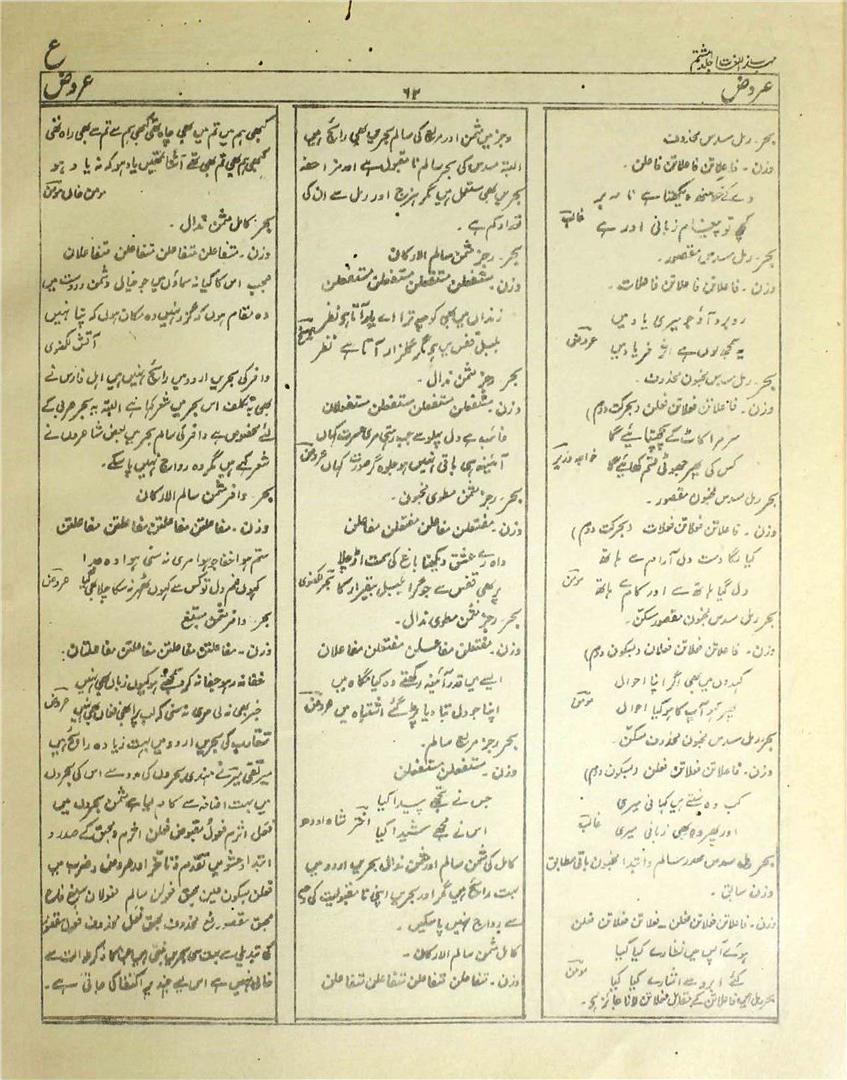 مہذب اللغات جلد ہشتم
ع
عروض
۶۲
عروض
بحر۔ رمل مسدس محذوف
وزن۔ فاعلاتن فاعلاتن فاعلن۔
دے کے خط منہ دیکھتا ہے نامہ بر
کچھ تو پیغام زبانی اور ہے
غالب
بحر۔ رمل مسدس مقصور۔
وزن۔ فاعلاتن فاعلاتن فاعلات۔
رو برو آؤ جو میری یاد میں
یہ کچھ
عروض
بحر۔ رمل مسدس مخبون محذوف۔
وزن۔ فاعلاتن فعلاتن فعلن (بحرکت دوم)
سر مرا کاٹ کے پچھتایئے گا
کس کی پھر جھوٹی قسم کھایئے گا
خواجہ وزیر
بحر رمل مسدس مخبون مقصور۔
وزن۔ فاعلاتن فعلاتن فعلات (بحرکت دوم)
کیا لگا دست دل آرام سے ہاتھ
دل گیا ہاتھ سے اور کام سے ہاتھ
مومن
بحر رمل مسدس مخبون مقصور مسکن۔
وزن۔ فاعلاتن فعلاتن فعلان (بسکون دوم)
کہدوں میں بھی اگر اپنا احوال
پھر تو آپ کا ہو کیا احوال
مومن
بحر رمل مسدس مخبون محذوف مسکن۔
وزن۔ فاعلاتن فعلاتن فعلن (بسکون دوم)
کب وہ سنتے ہیں کہانی میری
اور پھر وہ بھی زبانی میری
غالب
بحر رمل مسدس صدر سالم و ابتدا مخبون باقی مطابق
وزن سابق۔
وزن۔ فاعلاتن فعلاتن فعلن۔ فعلاتن فعلاتن فعلن
ہوئے آپس میں نظارے کیا کیا
کئے ابرو سے اشارے کیا کیا
مومن
بحر رمل میں فاعلاتن کے مقابل فعلاتن لانا جائز ہے۔
رجز میں مثمن اور مربع کی سالم بحریں بھی رائج ہیں
البتہ مسدس کی بحر سالم نا مقبول ہے اور مزاحفہ
بحریں بھی مستعمل ہیں مگر ہزج اور رمل سے ان کی
تعداد کم ہے۔
بحر۔ رجز مثمن سالم الارکان
وزن۔ مستفعلن مستفعلن مستفعلن مستفعلن
زنداں میں بھی کوچہ ترا اے یار آتا ہے نظر
بلبل قفس میں ہے مگر گلزار آتا ہے نظر
بحر۔ رجز مثمن مذال۔
وزن۔ مستفعلن مستفعلن مستفعلن مستفعلان
غائب ہے دل پہلو سے جب مٹتی مری حسرت کہاں
آئینہ ہی باقی نہیں ہو جلوہ گر صورت کہاں
عروض
بحر۔ رجز مثمن مطوی مخبون۔
وزن۔ مفتعلن مفاعلن مفتعلن مفاعلن
واہ رے عشق دیکھنا باغ کی سمت اڑ چلا
پر بھی قفس سے جو گرا بلبل بیقرار کا
لکھنوی
بحر۔ رجز مثمن مطوی مذال۔
وزن۔ مفتعلن مفاعلن مفتعلن مفاعلان
ایسے ہیں قدر آئینہ رکھتے وہ کیا نگاہ میں
اپنا جو دل بنا دیا پڑ گئے اشتباہ میں
عروض
بحر رجز مربع سالم۔
وزن۔ مستفعلن مستفعلن
جس نے تجھے پیدا کیا
اس نے مجھے شیدا کیا
اختر شاہ اودھ
کامل کی مثمن سالم اور مثمن مذال بحریں اردو میں
بہت رائج ہیں مگر اور بحریں اپنی نا مقبولیت کی
سے رواج نہیں پا سکیں۔
کامل مثمن سالم الارکان۔
وزن۔ متفاعلن متفاعلن متفاعلن متفاعلن
کبھی ہم میں تم میں بھی چاہ تھی کبھی ہم سے تم سے بھی راہ تھی
کبھی ہم بھی تم بھی تھے آشنا تمہیں یاد ہو کہ نہ یاد ہو
مومن خاں مومن
بحر: کامل مثمن مذال۔
وزن۔ متفاعلن متفاعلن متفاعلن متفاعلان
عجب اس کا کیا نہ سماؤں میں جو خیال دشمن و دوست میں
وہ مقام ہوں کہ گزر نہیں وہ مکان ہوں کہ پتا نہیں
آتش لکھنوی
وافر کی بحریں اردو میں رائج نہیں ہیں اہل فارس نے
بھی بہ تکلف اس بحر میں شعر کہا ہے البتہ یہ بحر عربی کے
لئے مخصوص ہے وافر کی سالم بحر میں بعض شاعروں نے
شعر کہے ہیں مگر وہ رواج نہیں پا سکے۔
بحر۔ وافر مثمن سالم الارکان
وزن۔ مفاعلتن مفاعلتن مفاعلتن مفاعلتن
ستم ہوا خفا جو ہوا مری نہ سنی ہوا وہ جدا
کہوں غم دل تو کس سے کہوں ٹھہر نہ سکا چلا بھی گیا
عروض
بحر۔ وافر مثمن مسبغ
وزن۔ مفاعلتن مفاعلتن مفاعلتن مفاعلتان۔
خفا نہ رہو جفا نہ کرو مجھے کہوں زباں بھی نہیں
خبر بھی نہ لی مری نہ سنی کہ لب پہ ابھی فغاں بھی نہیں
عروض
متقارب کی بحریں اردو میں بہت زیادہ رائج ہیں
میر تقی میر نے ہندی بحروں کی مدد سے اس کی بحروں
میں بہت اضافہ سے کام لیا ہے مثمن بحروں میں
فعل اثرم فعول مقبوض فعلن اثلم محبق کے صدر و
ابتدا و حشو میں تقدم و تاخر اور عروض و ضرب میں
فعلن بسکون عین محبق فعولن سالم فعولان مسبغ فاع
محبق مقصور فع محذوف محبق فعل محذوف فعول مقصور
کی تبدیلی سے بہت سی بحریں بنتی ہیں جن کا ذکر طوالت سے
خالی نہیں ہے اس لیے چند پر اکتفا کی جاتی ہے۔